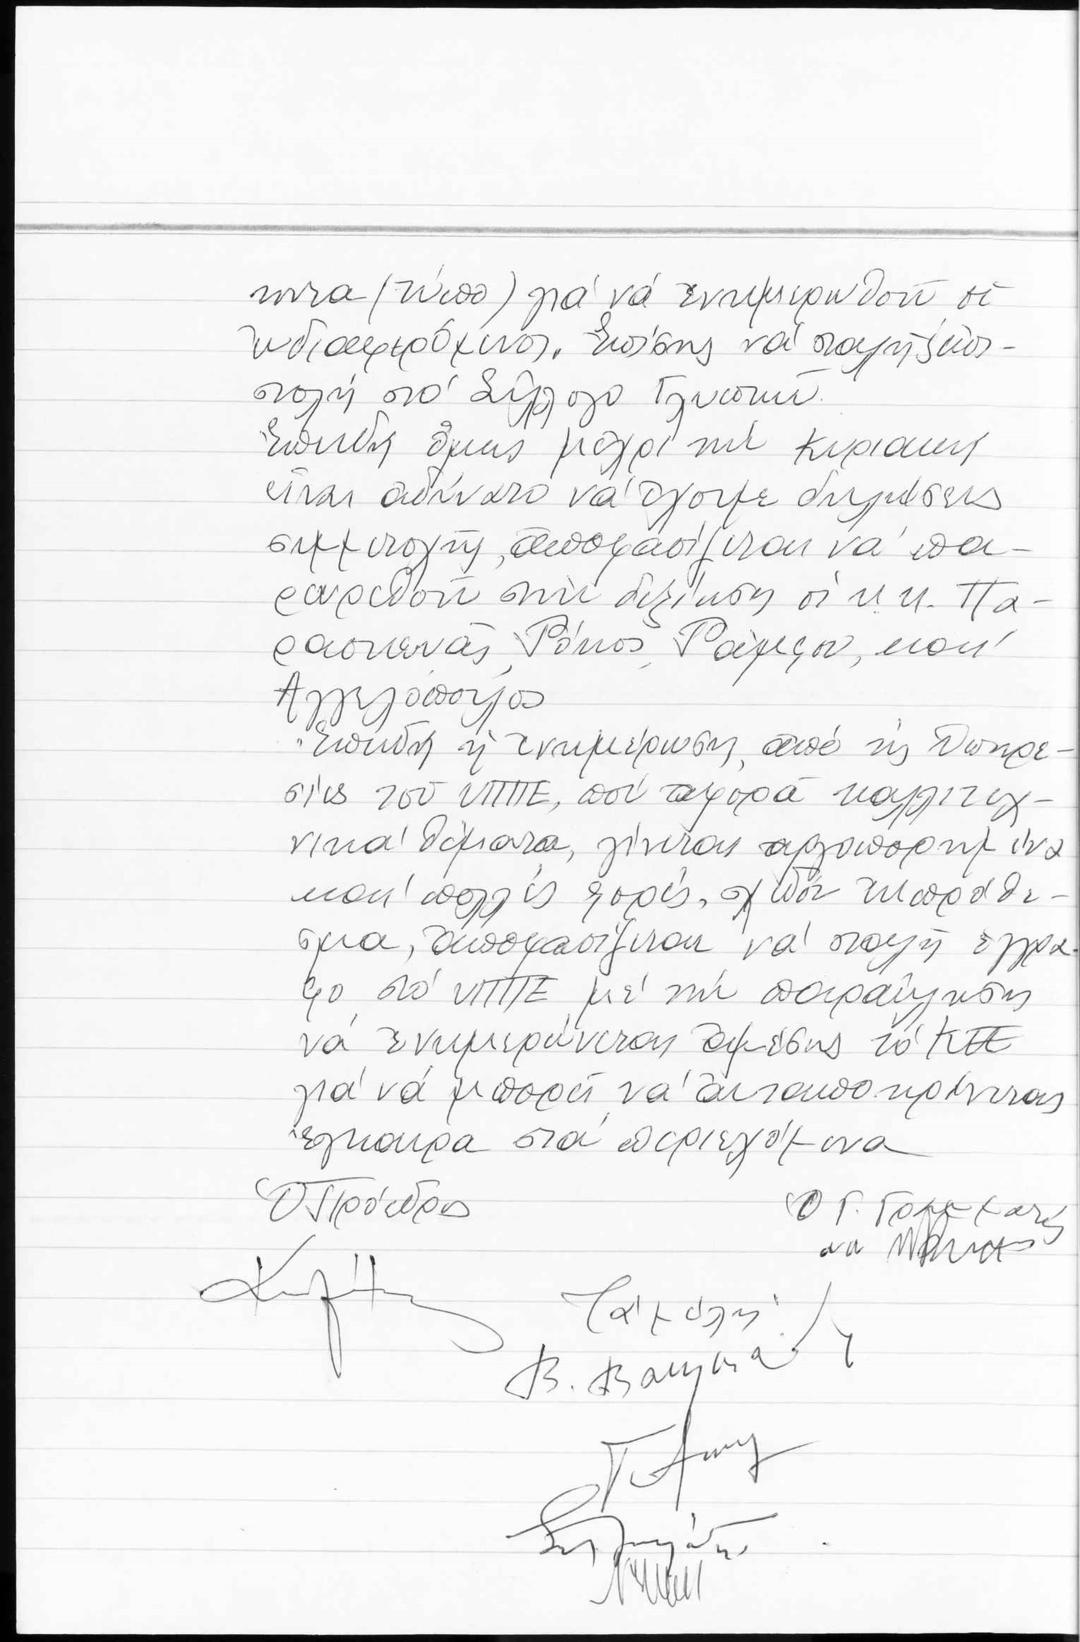 (τύπο) γιά νά ἐνημερωθοῦν οἱ
ἐνδιαφερόμενοι. Ἐπίσης νά σταλῆ ἐπι-
στολή στό Σύλλογο Γλυπτῶν.
Ἐπειδή ὅμως μέχρι τήν Κυριακή
εἶναι ἀδύνατο νά ἔχουμε δηλώσεις
συμμετοχῆς, ἀποφασίζεται νά πα-
ραυρεθοῦν στήν δεξίωση οἱ κ.κ. Πα-
ρασκευᾶς, Ρόκος, Ράμφου, καί
Ἀγγελόπουλος
Ἐπειδή ἡ ἐνημέρωση, ἀπό τίς Ὑπηρε-
σίες τοῦ ΥΠΠΕ, πού ἀφορᾶ καλλιτεχ-
νικά θέματα, γίνεται ἀργοπορημένα
καί πολλές φορές, σχεδόν ἐκπρόθε-
σμα, ἀποφασίζεται νά σταλῆ ἔγγρα-
φο στό ΥΠΠΕ μέ τήν παράκληση
νά ἐνημερώνεται ἀμέσως τό ΚΕΕ
γιά νά μπορεῖ νά ἀνταποκρίνεται
ἔγκαιρα στά περιεχόμενα
Ὁ Πρόεδρος
Ὁ Γ. Γραμματεύς
Τά μέλη